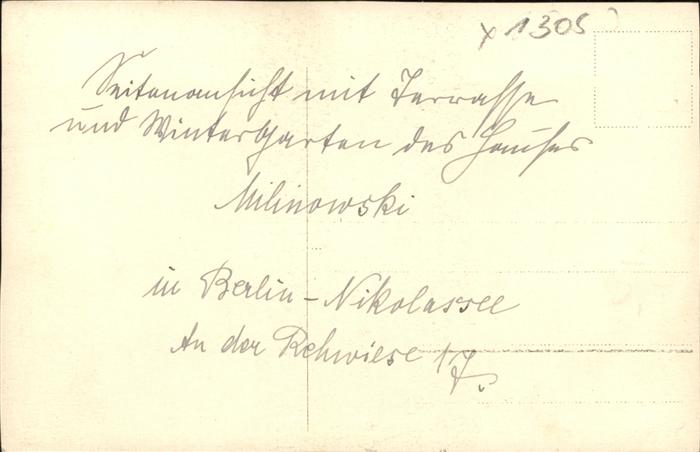 x 1305
Seitenansicht mit Terrasse
und Wintergarten des Hauses
Milinowski
in Berlin-Nikolassee
An der Rehwiese 17.